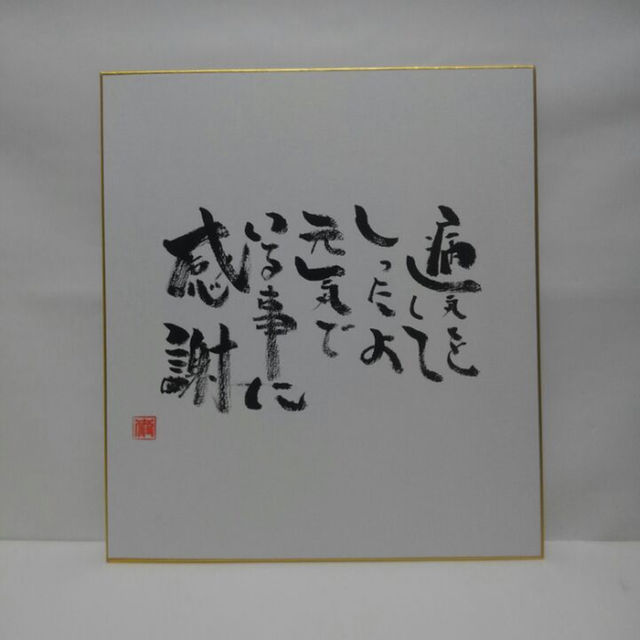 病気を
して
しったよ
元気で
いる事に
感謝